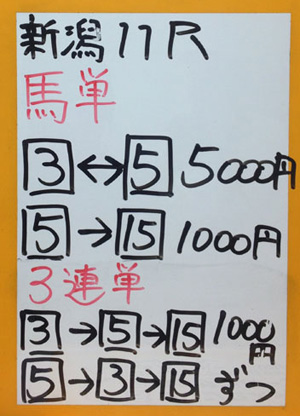 新潟11R
馬単
3↔5 5000円
5→15 1000円
3連単
3→5→15 1000円
5→3→15 ずつ